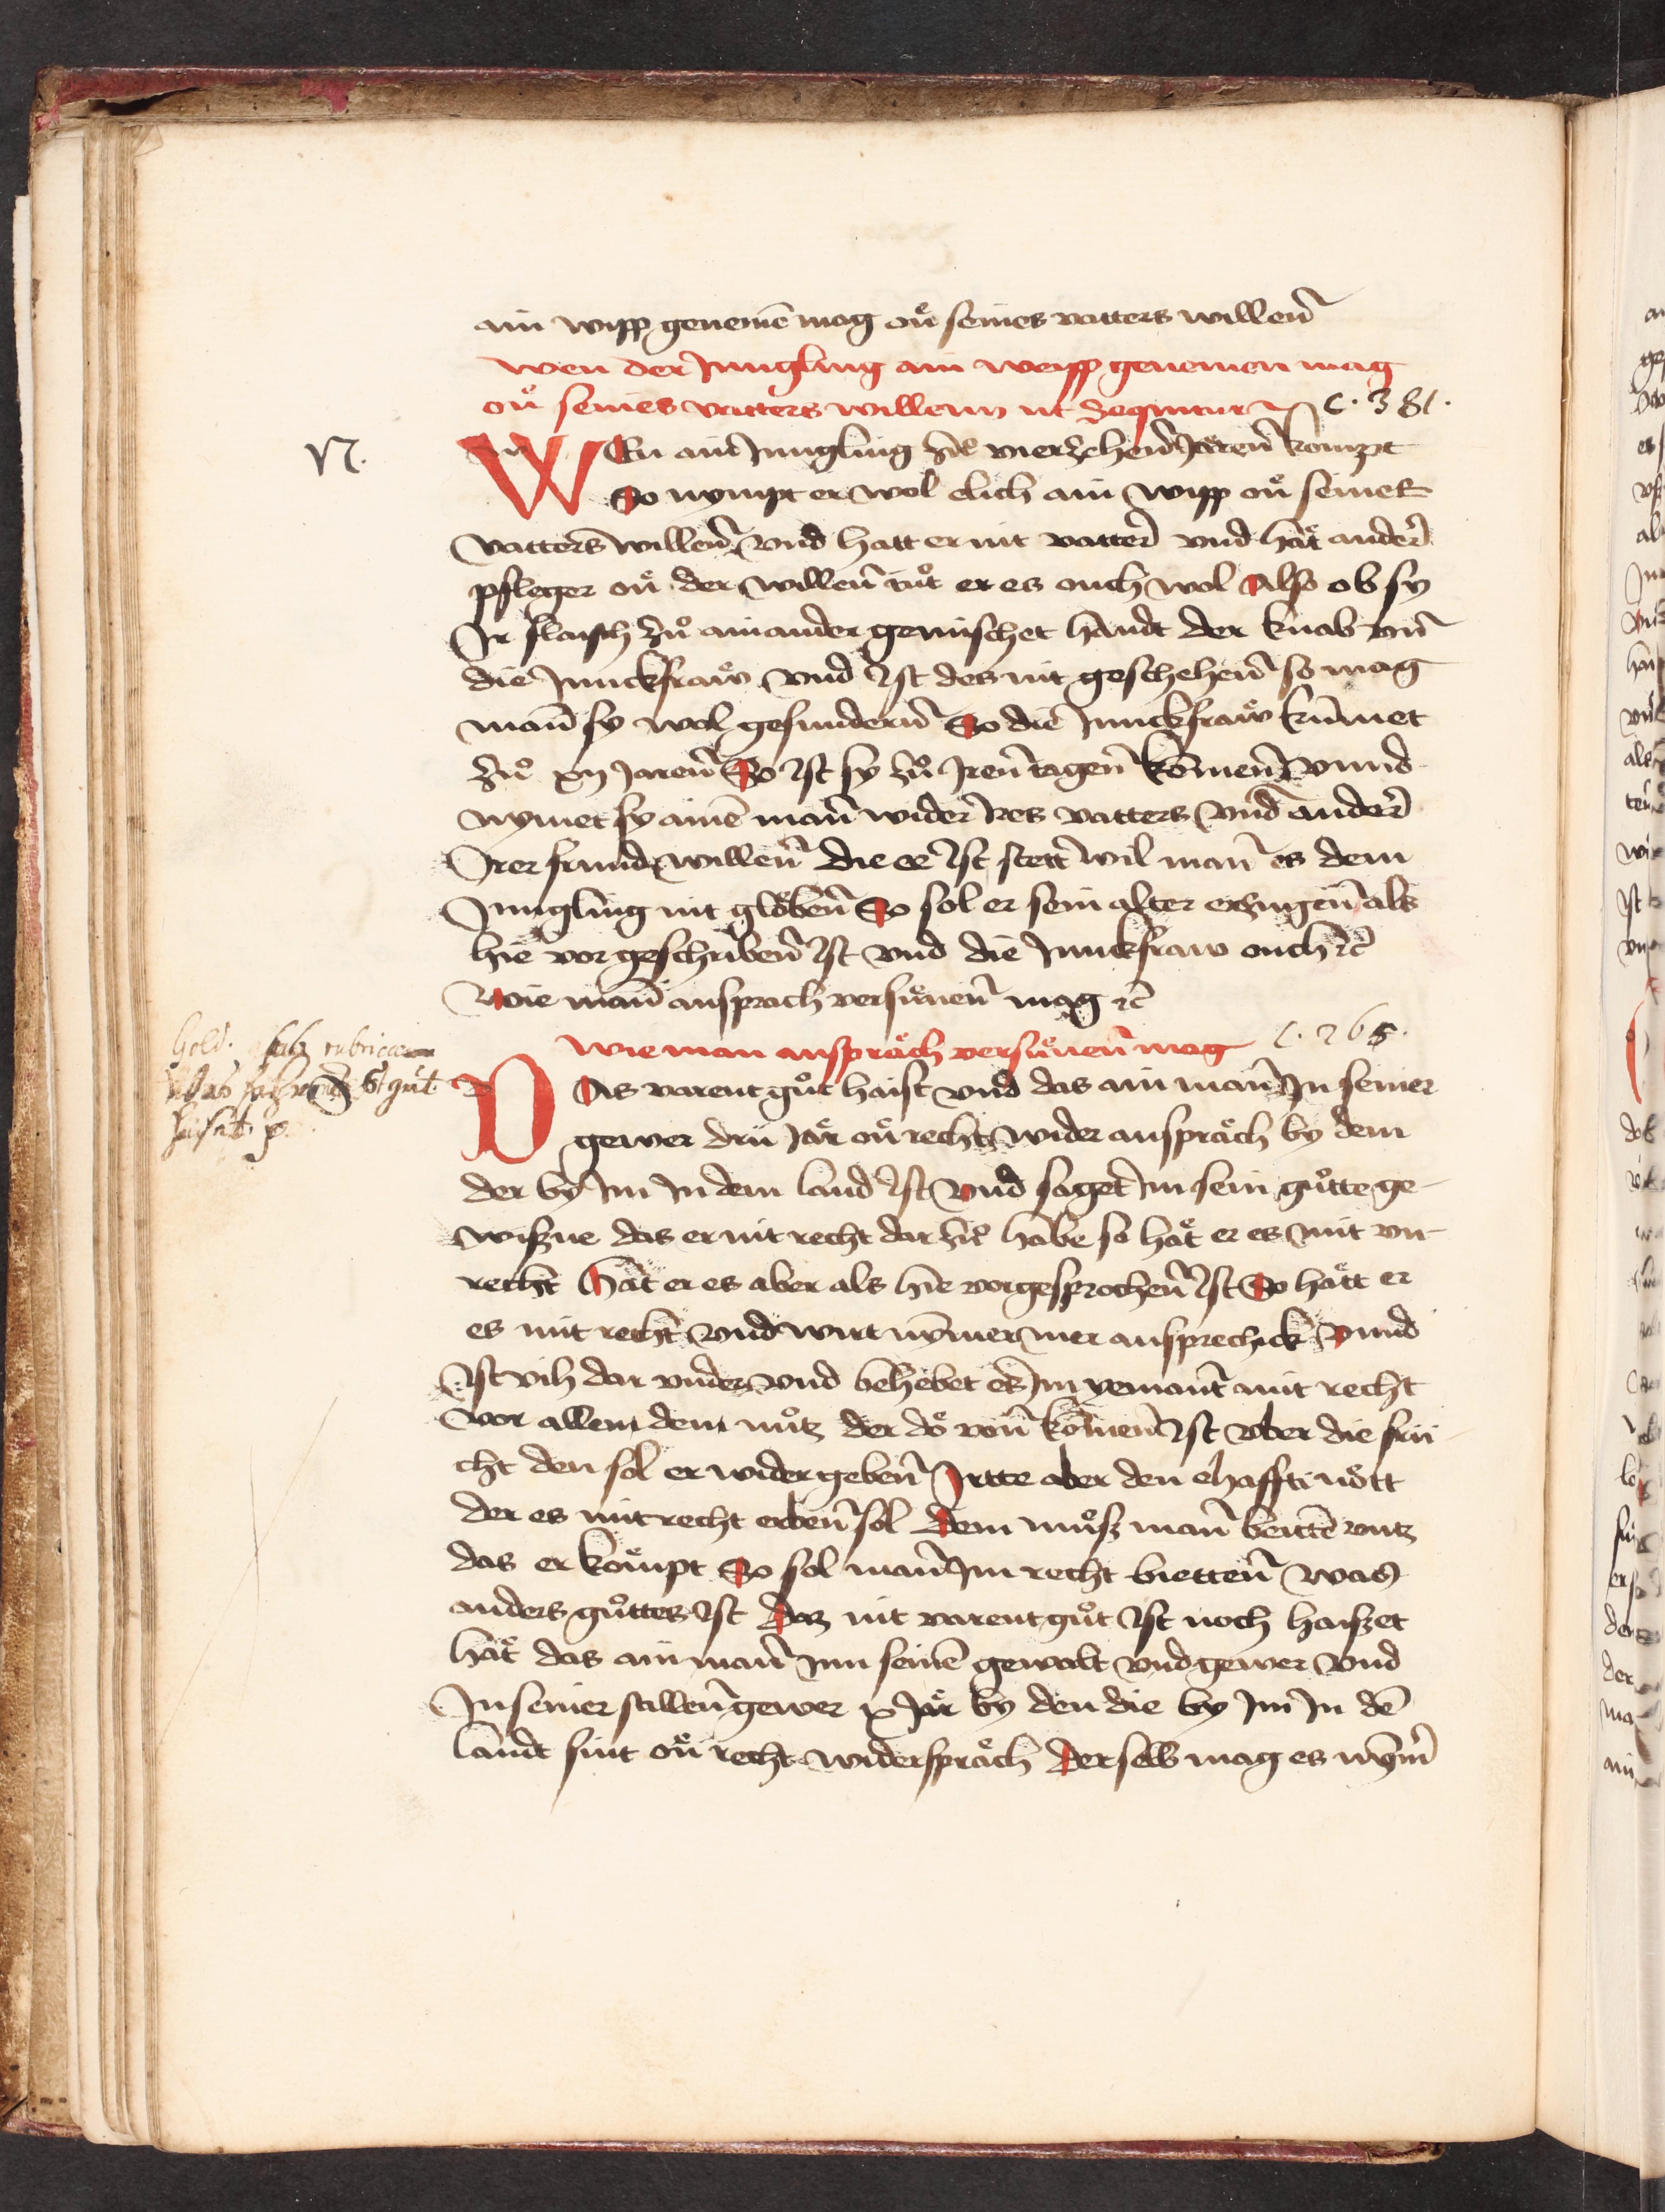 ain wipp genemē mag on̊ seines vatters willen̄
wen der Jungling ain weipp genemen mag
on̊ seines vatters willenn ut sequitur c. 381.
N.
WEn ain Jungling zů vierzehen̄ Jaren̄ kompt
So nympt er wol elich ain wipp on̊ seines
vatters willen̄ vnd hatt er nit vatter̄ vnd hät ander̄
pfleger on̊ der willen̄ tůt er es ouch wol Also ob sy
Ir flaisch zů ainander gemischet handt der knab vn̄
die Junckfraw vnd Ist des nit geschehen̄ so mag
man̄ sy wol gesundern̄ So die Junckfraw kumet
zů xij Jaren̄ So Ist sy zů Iren̄ tagen̄ komen̄ vnnd
nymet sy ainē man̄ wider Ires vatters vnd ander̄
Irer frund willen̄ die ee Ist stett wil man̄ es dem
Jungling nit glöben̄ So sol er sein alter erzugen̄ als
hie vor geschriben̄ Ist vnd die Junckfraw ouch ꝛc
Wie man̄ ansprach versůnen̄ mag ꝛc
wie man anspräch versůnen̄ mag c. 265.
Gold.
rubricam
DAs varent gůt haist vnd das ain man̄ In seiner
gewer drü Jär on̊ rechts wider anspräch by dem
der by Im In dem land Ist vnd saget Im sein gůtte ge-
wißne das er nit recht dar zů habe so hät er es mit vn-
recht Hät er es aber als hie vorgesprochen̄ Ist So hätt er
es mit recht vnd wirt nymer mer ansprechick vnnd
Ist vih dar vnder vnd behebet es Im yemant mit recht
vor allem dem nůtz der do von̄ komen̄ Ist vber die frü
cht den sol er wider geben̄ Irtte aber den ehaffti nott
der es mit recht erben̄ sol Dem můß man̄ beittē vntz
das er kompt So sol man̄ Im recht bietten̄ Was
anders gůttes Ist Daz nit varent gůt Ist noch haisset
hät das ain man̄ Inn seinē gewalt vnd gewer vnd
In seiner stillen̄ gewer x Jär by den die by Im In dē
landt sint on̊ recht widerspräch Der selb mag es nym̄